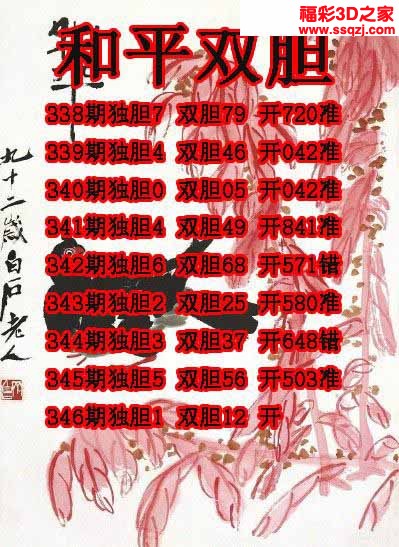 福彩3D之家
www.ssqzj.com
和平双胆
338期独胆7 双胆79 开720准
339期独胆4 双胆46 开042准
340期独胆0 双胆05 开042准
341期独胆4 双胆49 开841准
342期独胆6 双胆68 开571错
343期独胆2 双胆25 开580准
344期独胆3 双胆37 开648错
345期独胆5 双胆56 开503准
346期独胆1 双胆12 开
九十二岁白石老人